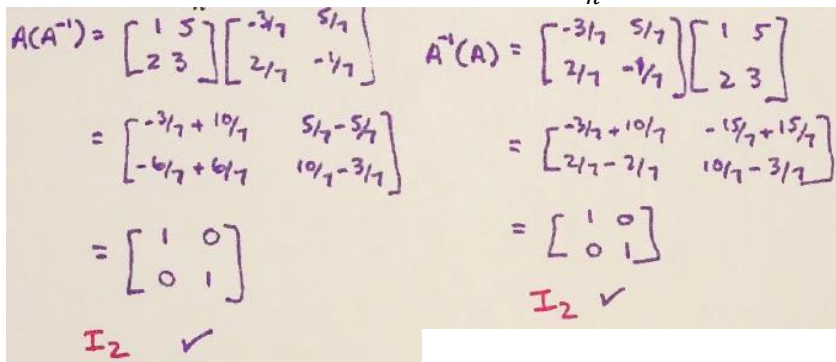 n n
A(A⁻¹) = [ 1 5 ] [ -3/7 5/7 ]
[ 2 3 ] [ 2/7 -1/7 ]
= [ -3/7 + 10/7 5/7 - 5/7 ]
[ -6/7 + 6/7 10/7 - 3/7 ]
= [ 1 0 ]
[ 0 1 ]
I₂ ✓
A⁻¹(A) = [ -3/7 5/7 ] [ 1 5 ]
[ 2/7 -1/7 ] [ 2 3 ]
= [ -3/7 + 10/7 -15/7 + 15/7 ]
[ 2/7 - 2/7 10/7 - 3/7 ]
= [ 1 0 ]
[ 0 1 ]
I₂ ✓